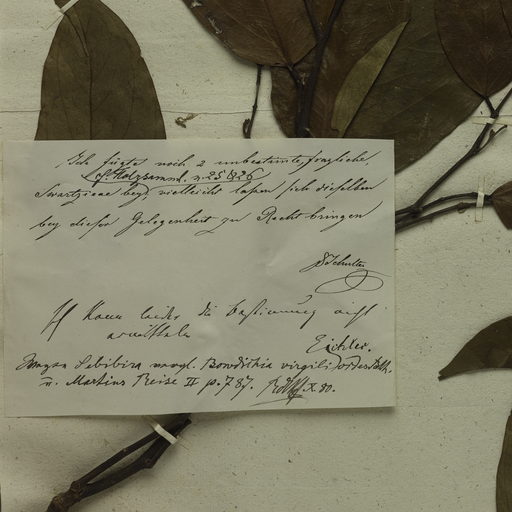 Ich fügte noch 2 unbestimte, fragliche,
(cf. Holzsamml. n. 25 & 26
Swartzieae bey, vielleicht lassen sich dieselben
bey dieser Gelegenheit zu Recht bringen
Ich kann leider die Bestimmung nicht
ermitteln
Eichler.
Sebibira vergl. Bowdichia virgilioides
u. Martius Reise II p. 787. X. 80.